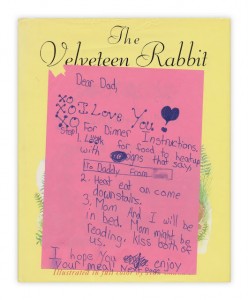 The
Velveteen Rabbit
Dear Dad,
XO I Love You!
XO For Dinner Instructions.
Step 1. Look for food to heatup
with that says
To Daddy From
2. Heat eat an come
downstairs.
3. Mom And I will be
in bed. Mom might be
reading. Kiss both of
us.
I hope You enjoy
your meal
Illustrated in full color by